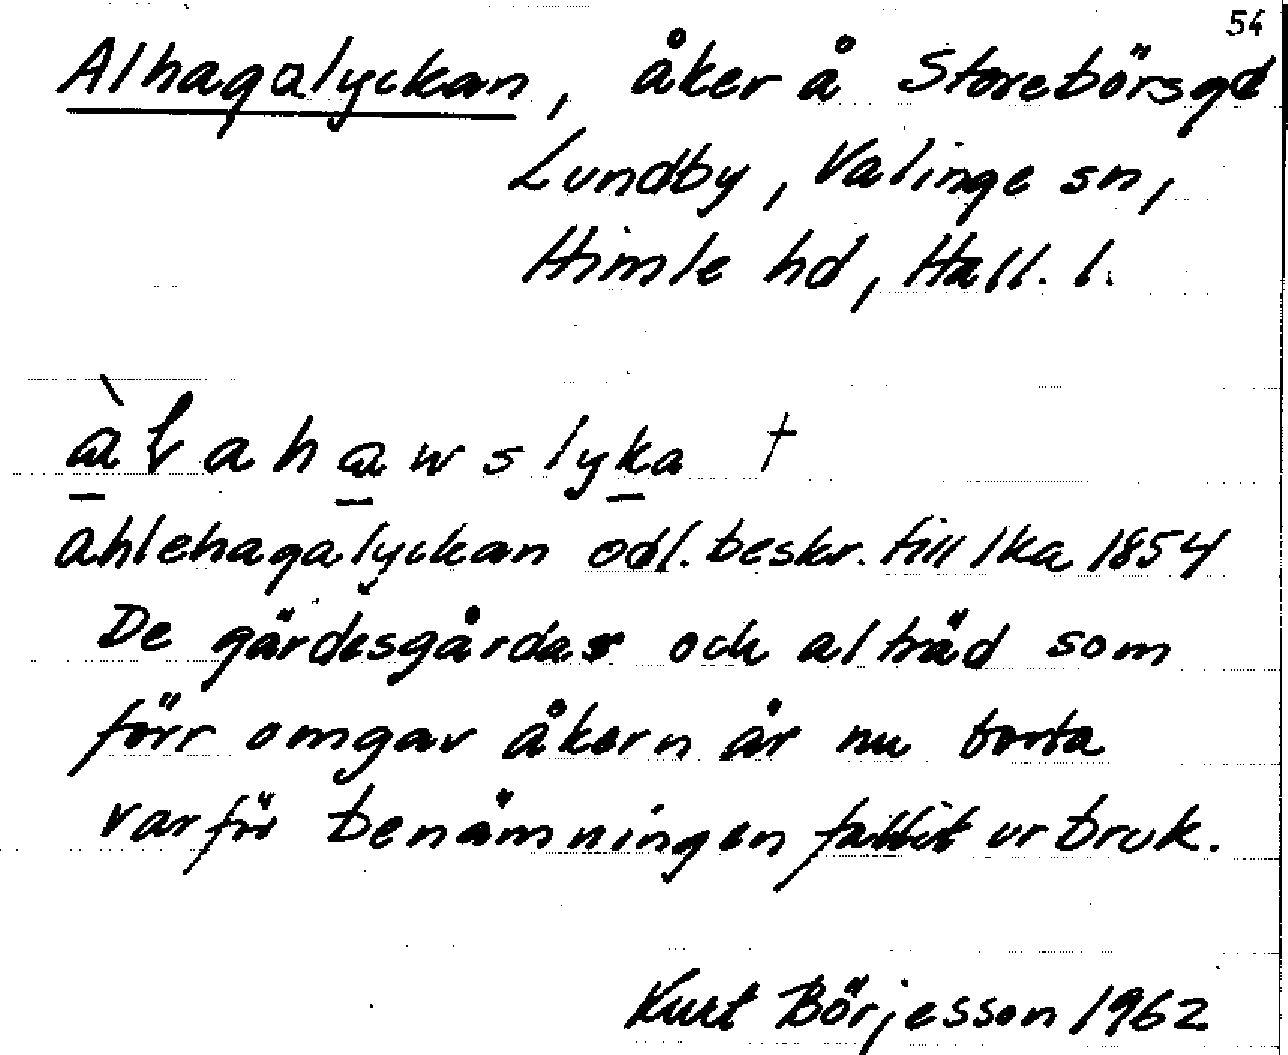 54
Alhagalyckan, åker å Storebörsgd
Lundby, Valinge sn,
Himle hd, Hall. l.
†
ahlehagalyckan odl. beskr. till lka 1854
De gärdesgårdar och alträd som
förr omgav åkern är nu borta
varför benämningen fallit ur bruk.
Kurt Börjesson 1962